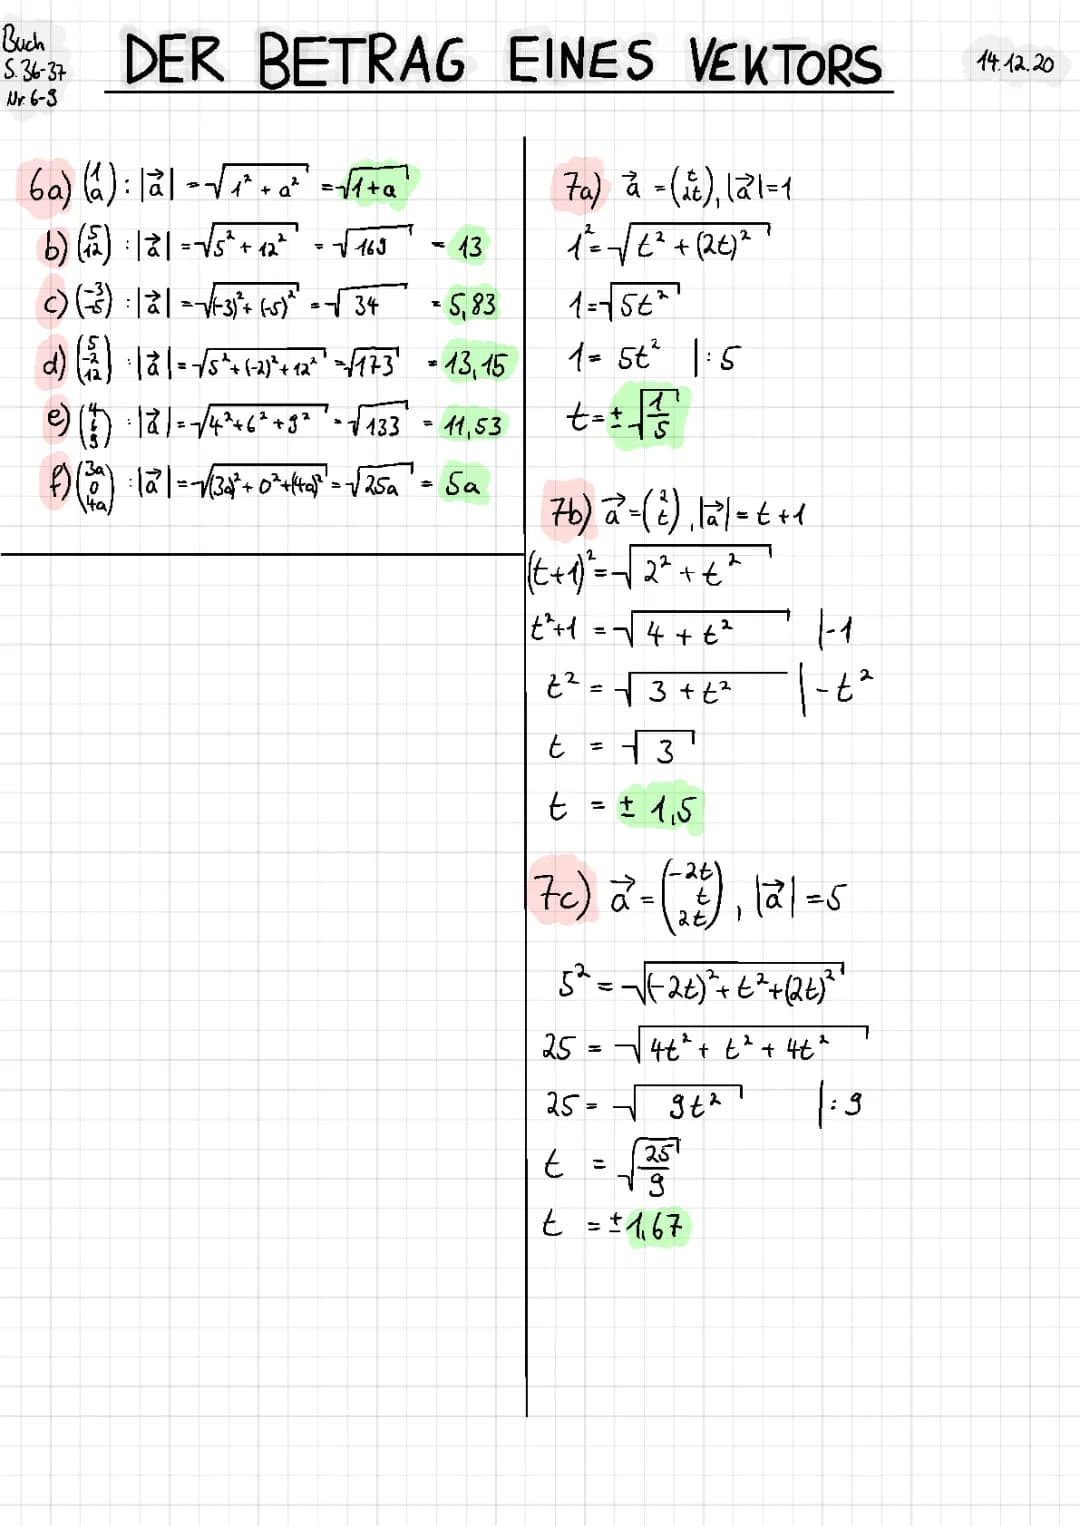 Buch
S. 36-37
Nr. 6-9
DER BETRAG EINES VEKTORS
14.12.20
6a) (1 a) : |a⃗| = √(1² + a²) = √(1+a)
b) (5 12) : |a⃗| = √(5² + 12²) = √169 = 13
c) (-3 -5) : |a⃗| = √((-3)² + (-5)²) = √34 = 5,83
d) (5 -2 12) : |a⃗| = √(5² + (-2)² + 12²) = √173 = 13,15
e) (4 6 9) : |a⃗| = √(4² + 6² + 9²) = √133 = 11,53
f) (3a 0 4a) : |a⃗| = √((3a)² + 0² + (4a)²) = √(25a) = 5a
7a) a⃗ = (t 2t), |a⃗| = 1
1² = √(t² + (2t)²)
1 = √(5t²)
1 = 5t² | : 5
t = ± √(1/5)
7b) a⃗ = (2 t), |a⃗| = t + 1
(t+1)² = √(2² + t²)
t²+1 = √(4 + t²) | -1
t² = √(3 + t²) | - t²
t = √3
t = ± 1,5
7c) a⃗ = (-2t t 2t), |a⃗| = 5
5² = √((-2t)² + t² + (2t)²)
25 = √(4t² + t² + 4t²)
25 = √(9t²) | : 9
t = √(25/9)
t = ± 1,67